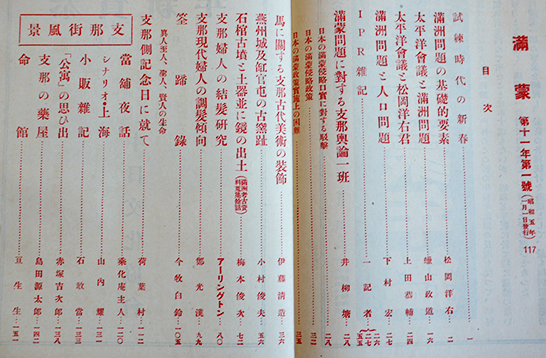 滿蒙 第十一年第一號 (昭和五年一月一日發行)
117
目次
試練時代の新春 一
滿洲問題の基礎的要素 松岡洋右 二
太平洋會議と滿洲問題 蠟山政道 一六
太平洋會議と松岡洋右君 上田恭輔
滿洲問題と人口問題 下村宏
IPR雜記 一記者
滿蒙問題に對する支那輿論一班 井柳塘 二八
日本の滿蒙侵略口實に對する駁擊 二八
日本の滿蒙侵略政策 三一
日本の滿蒙政策實施上の困難 三五
馬に關する支那古代美術の裝飾 伊藤淸造 三六
燕州城及缸官屯の古窯趾 小村俊夫 五六
石棺古墳と土器並に鏡の出土 (滿洲考古資料蒐集餘話) 梅本俊次 七二
支那婦人の結髮硏究 アーリングトン 八一
支那現代婦人の調髮傾向 鄭光漢 九九
筌蹄錄 今牧白鈴 一〇五
異人至人、眾人、賢人の生命
支那側記念日に就て 荷葉村 一一二
支那街風景
當舖夜話 乘化庵主人 一二〇
シナリオ・上海 山內耀 一二三
小販雜記 石敢當 一三三
「公寓」の思ひ出 赤塚吉次郎 一三八
支那の藥屋 島田源太郎 一四二
命館 亘生生 一五一